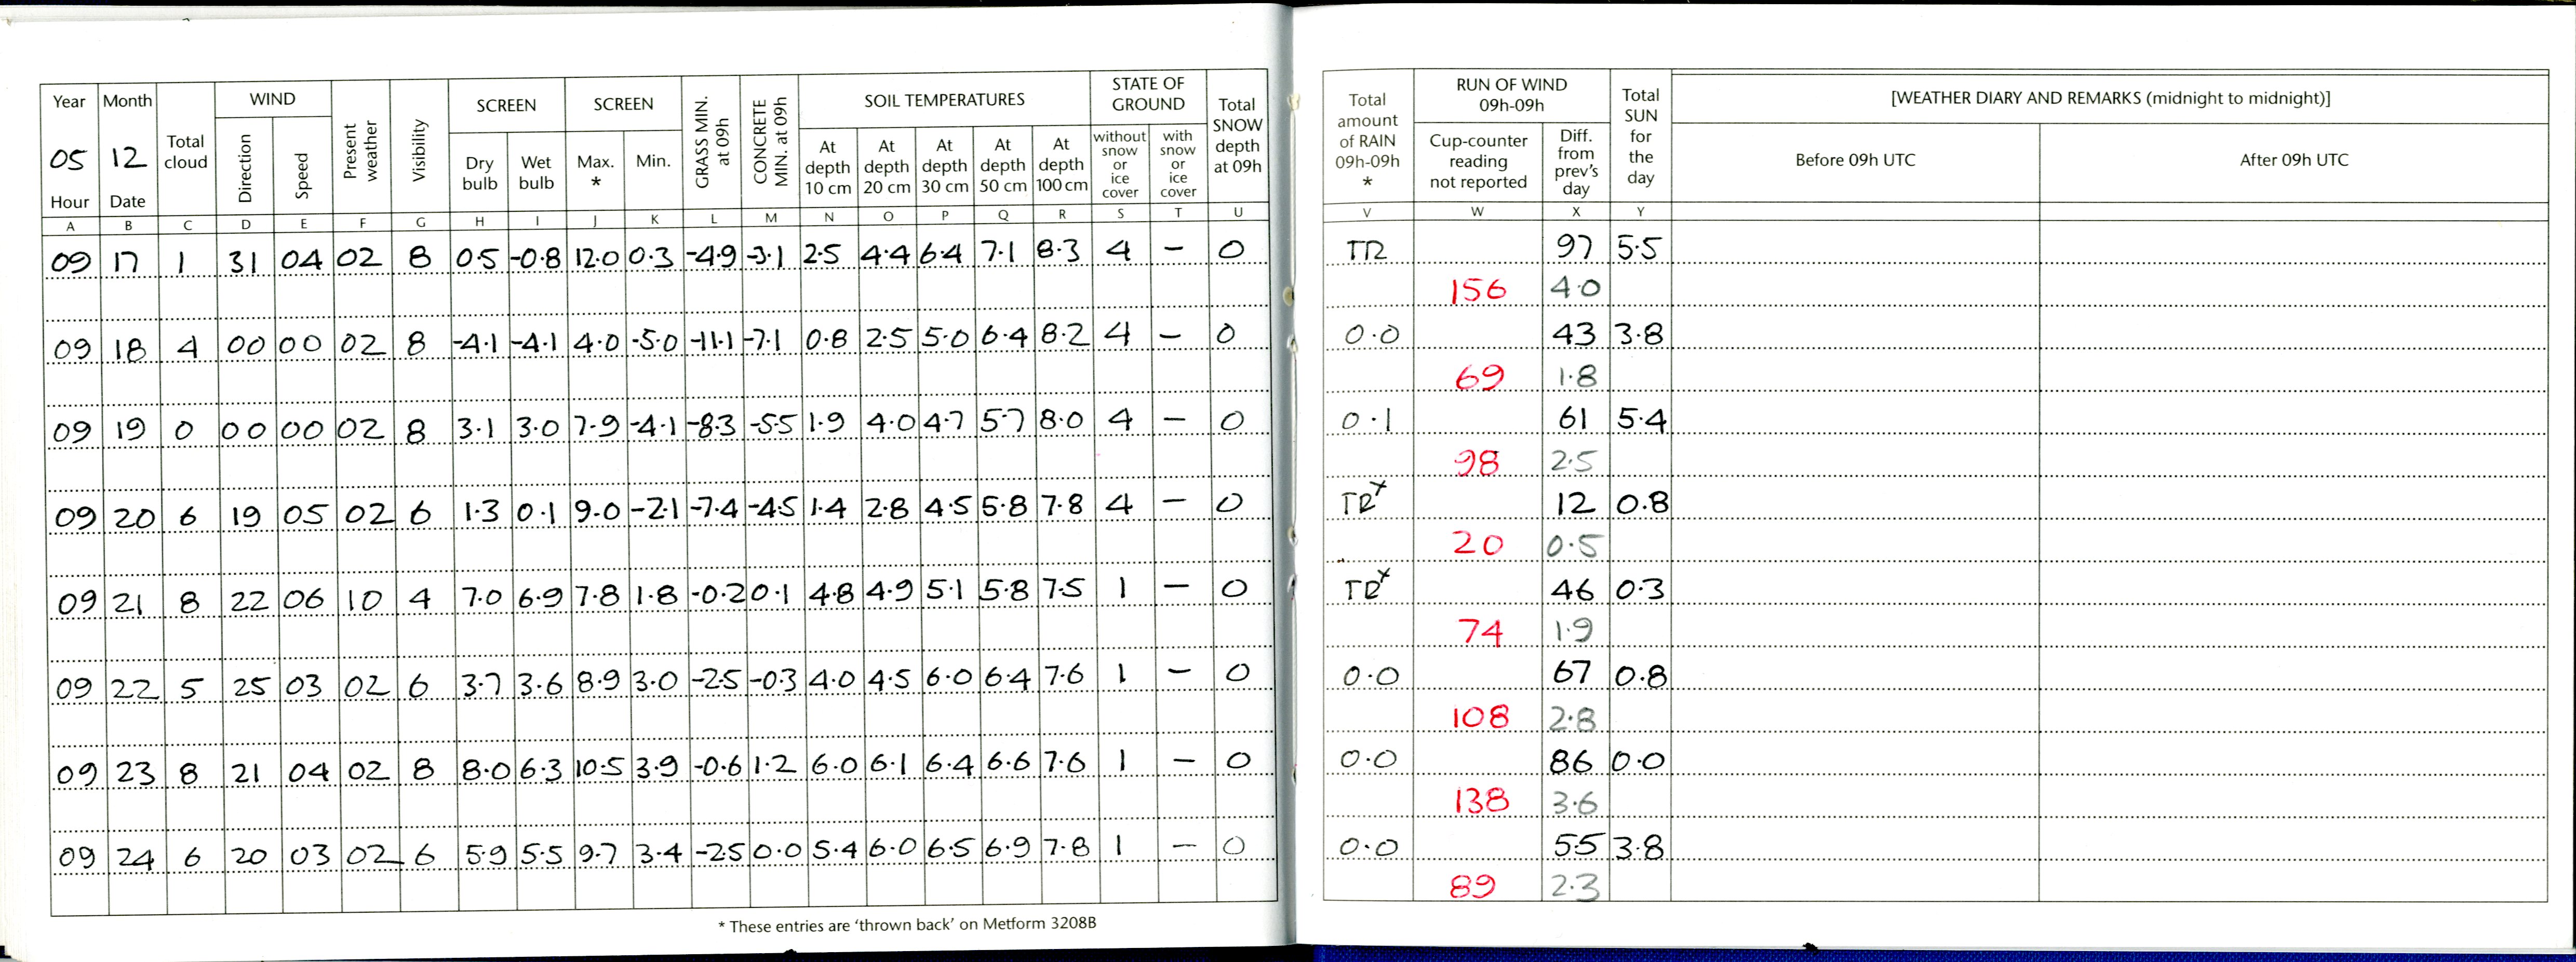 Year Month Total cloud WIND Present weather Visibility SCREEN SCREEN GRASS MIN. at 09h CONCRETE MIN. at 09h SOIL TEMPERATURES STATE OF GROUND Total SNOW depth at 09h
05 12 Direction Speed Dry bulb Wet bulb Max. * Min. At depth 10 cm At depth 20 cm At depth 30 cm At depth 50 cm At depth 100 cm without snow or ice cover with snow or ice cover
Hour Date
A B C D E F G H I J K L M N O P Q R S T U
09 17 1 31 04 02 8 0.5 -0.8 12.0 0.3 -4.9 -3.1 2.5 4.4 6.4 7.1 8.3 4 - 0
09 18 4 00 00 02 8 -4.1 -4.1 4.0 -5.0 -11.1 -7.1 0.8 2.5 5.0 6.4 8.2 4 - 0
09 19 0 00 00 02 8 3.1 3.0 7.9 -4.1 -8.3 -5.5 1.9 4.0 4.7 5.7 8.0 4 - 0
09 20 6 19 05 02 6 1.3 0.1 9.0 -2.1 -7.4 -4.5 1.4 2.8 4.5 5.8 7.8 4 - 0
09 21 8 22 06 10 4 7.0 6.9 7.8 1.8 -0.2 0.1 4.8 4.9 5.1 5.8 7.5 1 - 0
09 22 5 25 03 02 6 3.7 3.6 8.9 3.0 -2.5 -0.3 4.0 4.5 6.0 6.4 7.6 1 - 0
09 23 8 21 04 02 8 8.0 6.3 10.5 3.9 -0.6 1.2 6.0 6.1 6.4 6.6 7.6 1 - 0
09 24 6 20 03 02 6 5.9 5.5 9.7 3.4 -2.5 0.0 5.4 6.0 6.5 6.9 7.8 1 - 0
* These entries are ‘thrown back’ on Metform 3208B
Total amount of RAIN 09h-09h * RUN OF WIND 09h-09h Total SUN for the day [WEATHER DIARY AND REMARKS (midnight to midnight)]
Cup-counter reading not reported Diff. from prev's day Before 09h UTC After 09h UTC
V W X Y
TR 97 5.5
156 4.0
0.0 43 3.8
69 1.8
0.1 61 5.4
98 2.5
TR x 12 0.8
20 0.5
TR x 46 0.3
74 1.9
0.0 67 0.8
108 2.8
0.0 86 0.0
138 3.6
0.0 55 3.8
89 2.3